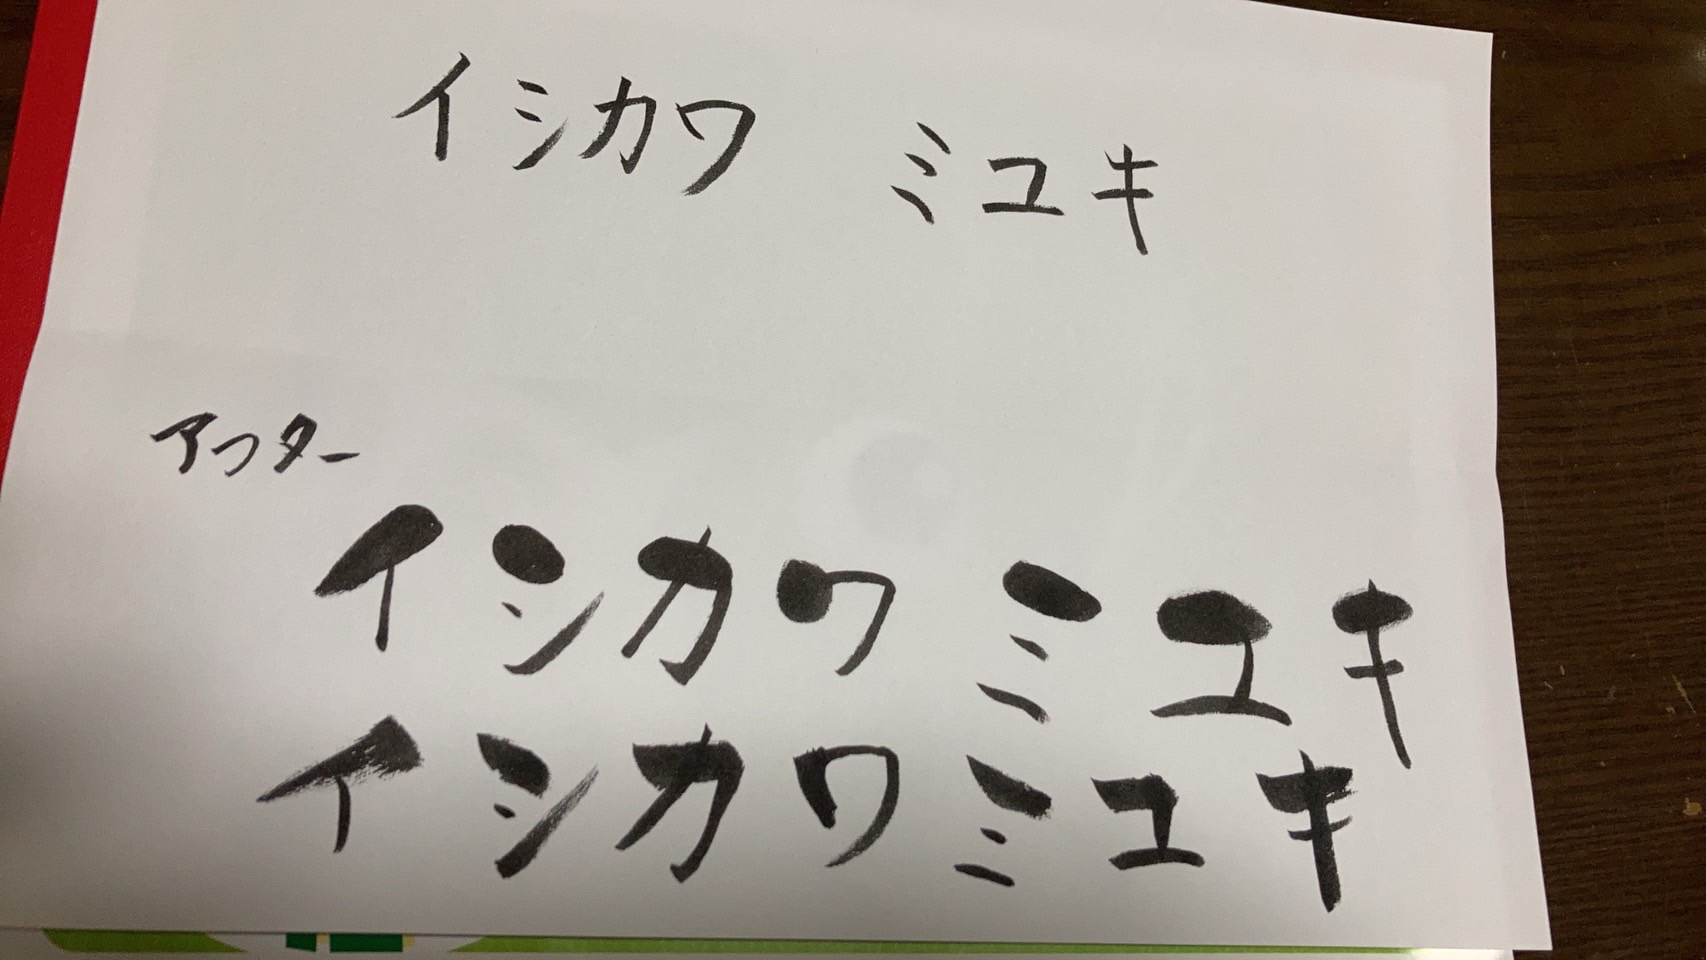 イシカワ ミユキ
アフター
イシカワ ミユキ
イシカワミユキ